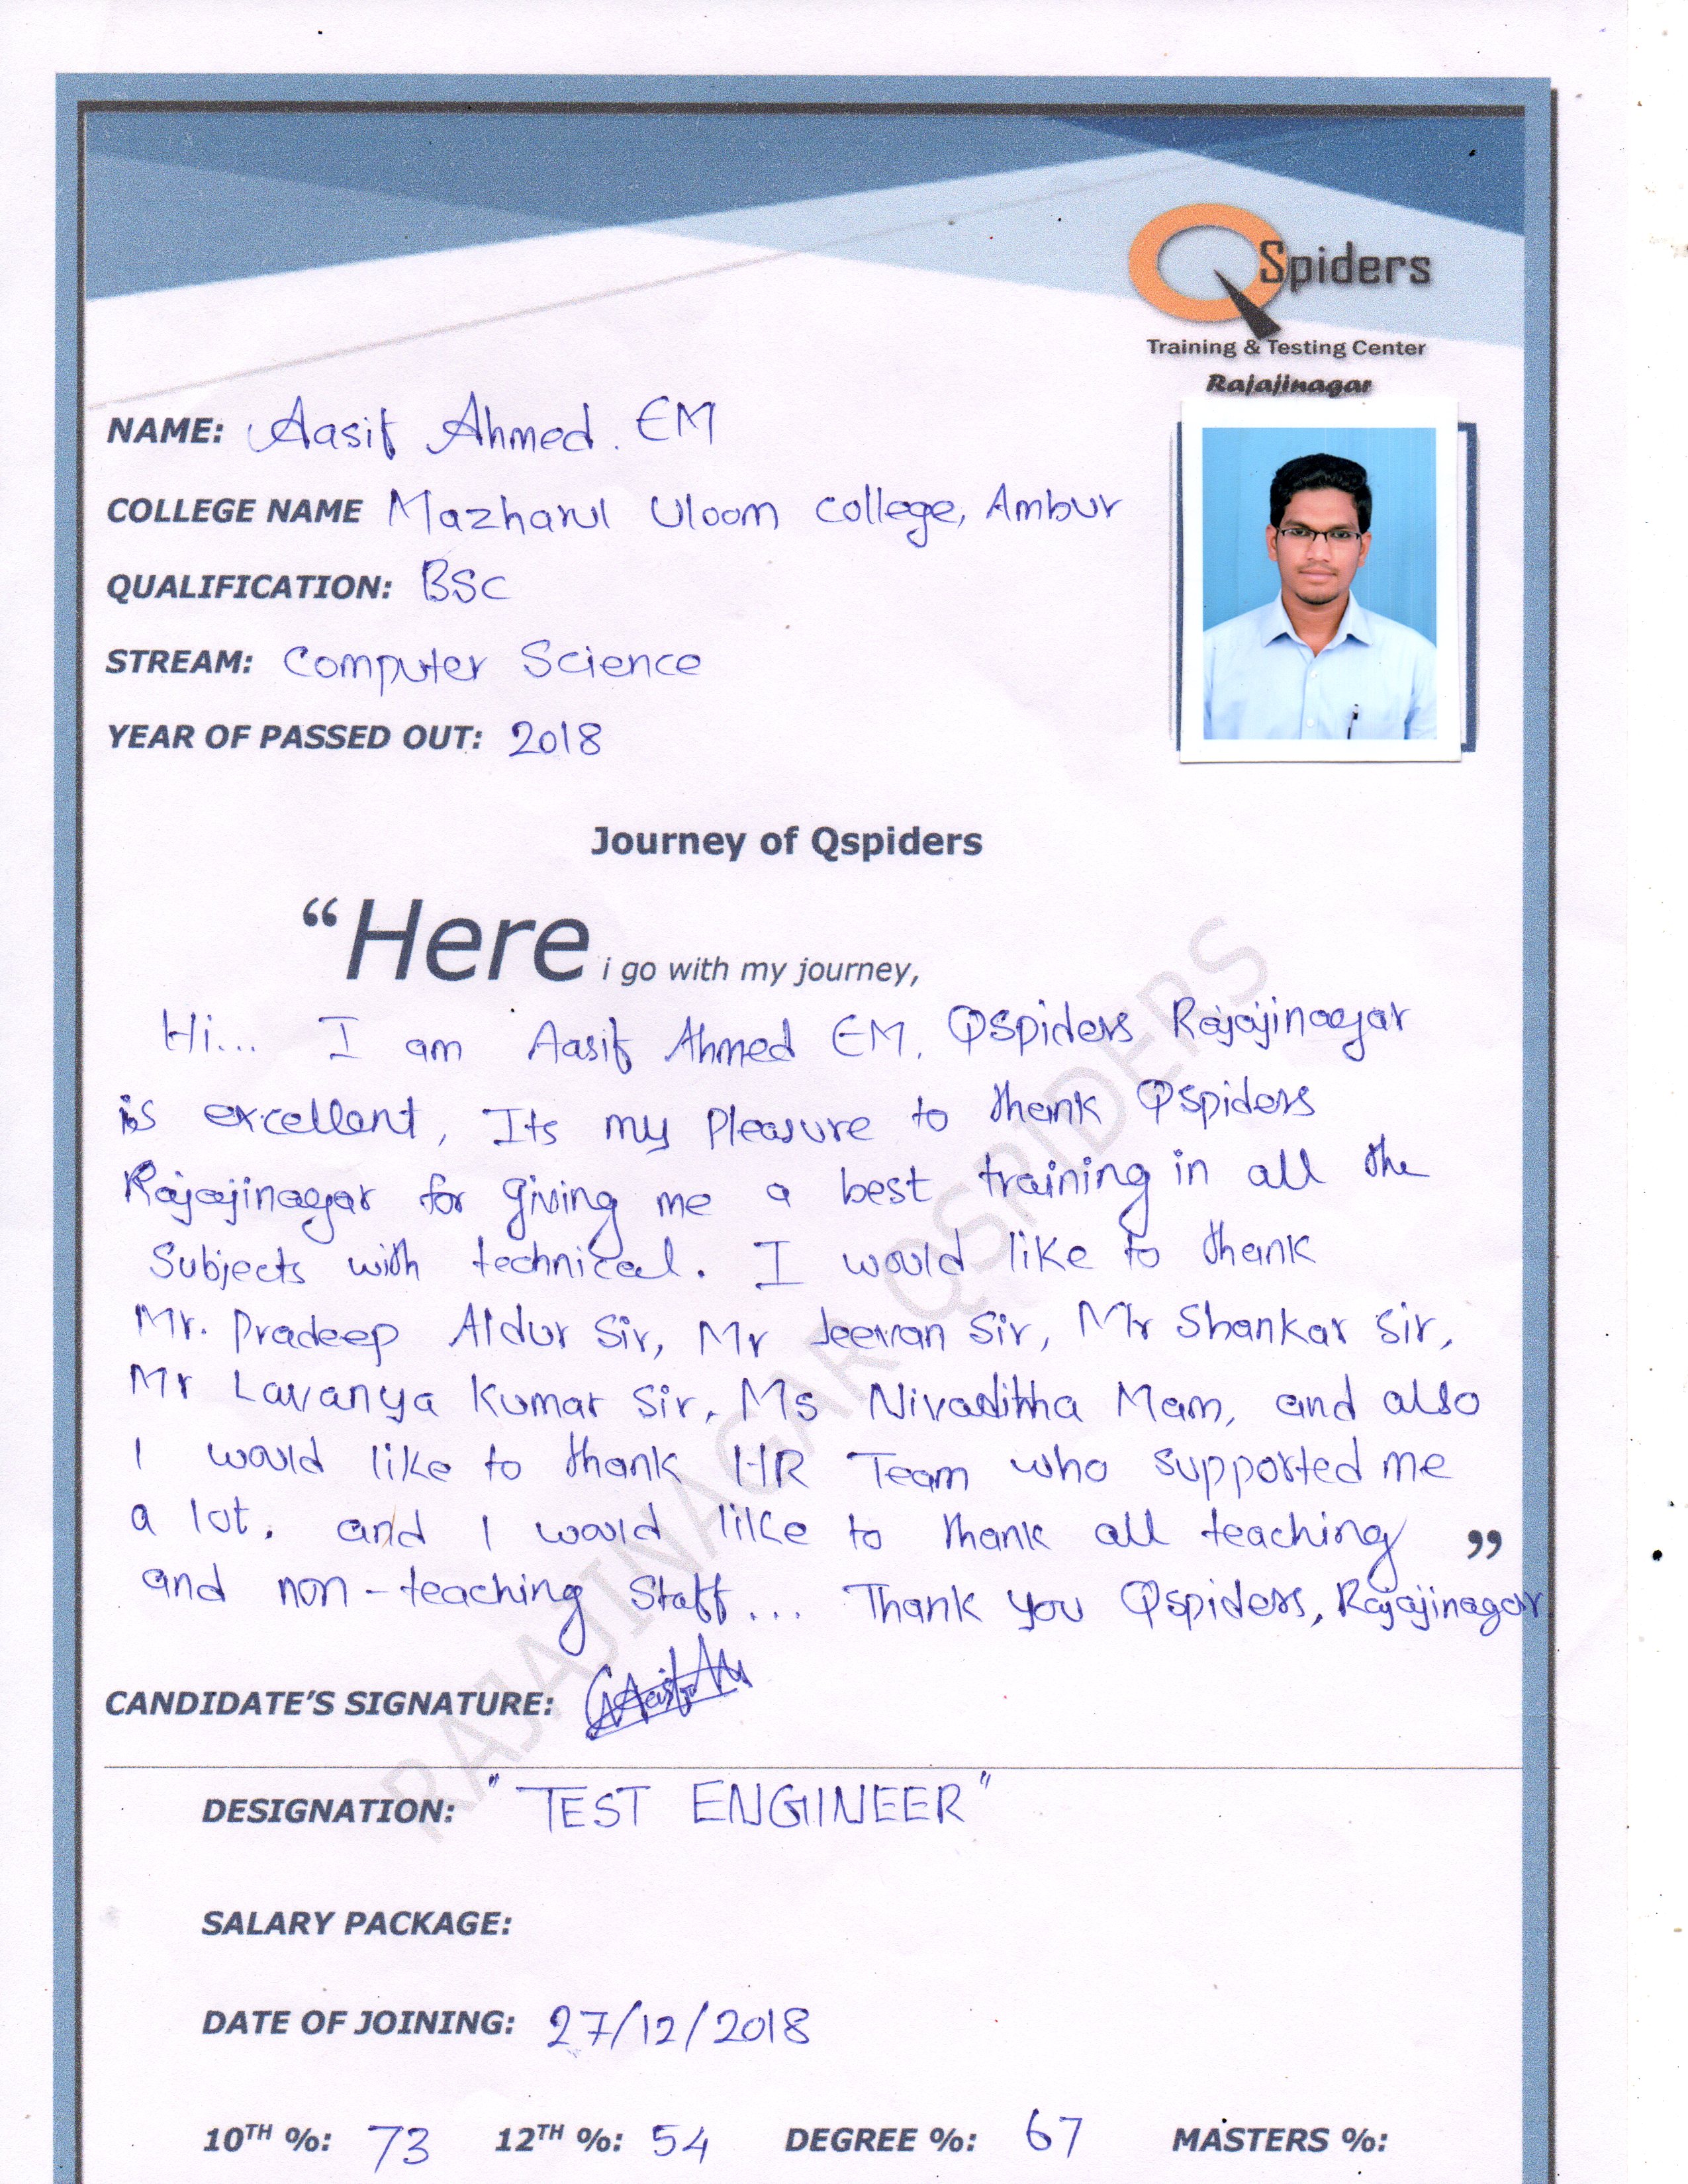 QSpiders
Training & Testing Center
Rajajinagar
NAME: Aasif Ahmed. EM
COLLEGE NAME Mazharul Uloom college, Ambur
QUALIFICATION: BSc
STREAM: Computer Science
YEAR OF PASSED OUT: 2018
Journey of Qspiders
“Here i go with my journey,
Hi... I am Aasif Ahmed EM. Qspiders Rajajinagar
is excellent, Its my Pleasure to thank Qspiders
Rajajinagar for giving me a best training in all the
Subjects with technical. I would like to thank
Mr. Pradeep Aldur Sir, Mr Jeevan Sir, Mr Shankar Sir,
Mr Lavanya Kumar Sir, Ms Nivaditha Mam, and also
I would like to thank HR Team who supported me
a lot. and I would like to thank all teaching ”
and non-teaching Staff... Thank you Qspiders, Rajajinagar
CANDIDATE’S SIGNATURE:
DESIGNATION: "TEST ENGINEER"
SALARY PACKAGE:
DATE OF JOINING: 27/12/2018
10TH %: 73 12TH %: 54 DEGREE %: 67 MASTERS %:
RAJAJINAGAR QSPIDERS